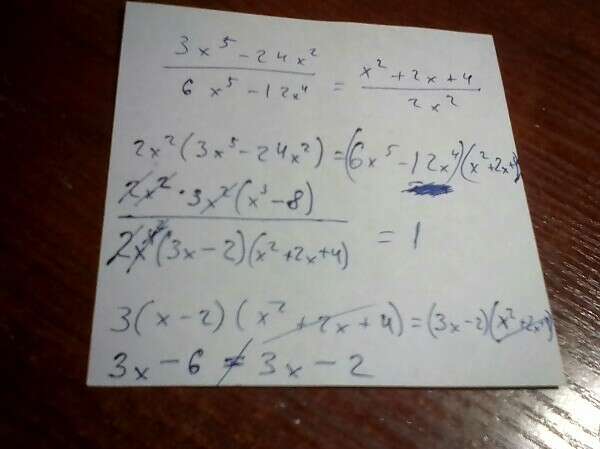 3x⁵ - 24x² / 6x⁵ - 12x⁴ = x² + 2x + 4 / 2x²
2x²(3x⁵ - 24x²) = (6x⁵ - 12x⁴)(x² + 2x + 4)
2x² · 3x²(x³ - 8) / 2x⁴(3x - 2)(x² + 2x + 4) = 1
3(x - 2)(x² + 2x + 4) = (3x - 2)(x² + 2x + 4)
3x - 6 ≠ 3x - 2